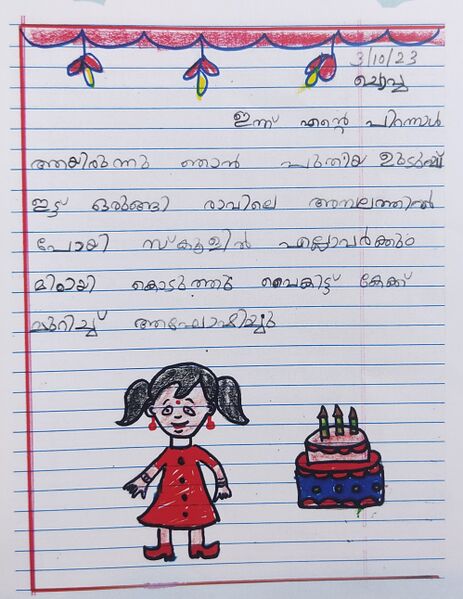 3/10/23
ചൊവ്വ
ഇന്ന് എന്റെ പിറന്നാൾ
ആയിരുന്നു ഞാൻ പുതിയ ഉടുപ്പ്
ഇട്ട് ഒരുങ്ങി രാവിലെ അമ്പലത്തിൽ
പോയി സ്കൂളിൽ എല്ലാവർക്കും
മിഠായി കൊടുത്തു വൈകിട്ട് കേക്ക്
മുറിച്ച് ആഘോഷിച്ചു